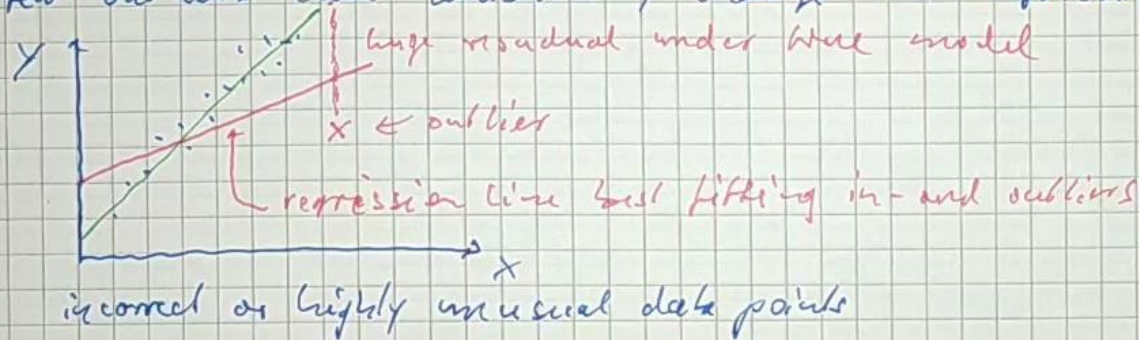 Y
huge residual under true model
x ← outlier
regression line best fitting in- and outliers
X
incorrect or highly unusual data points